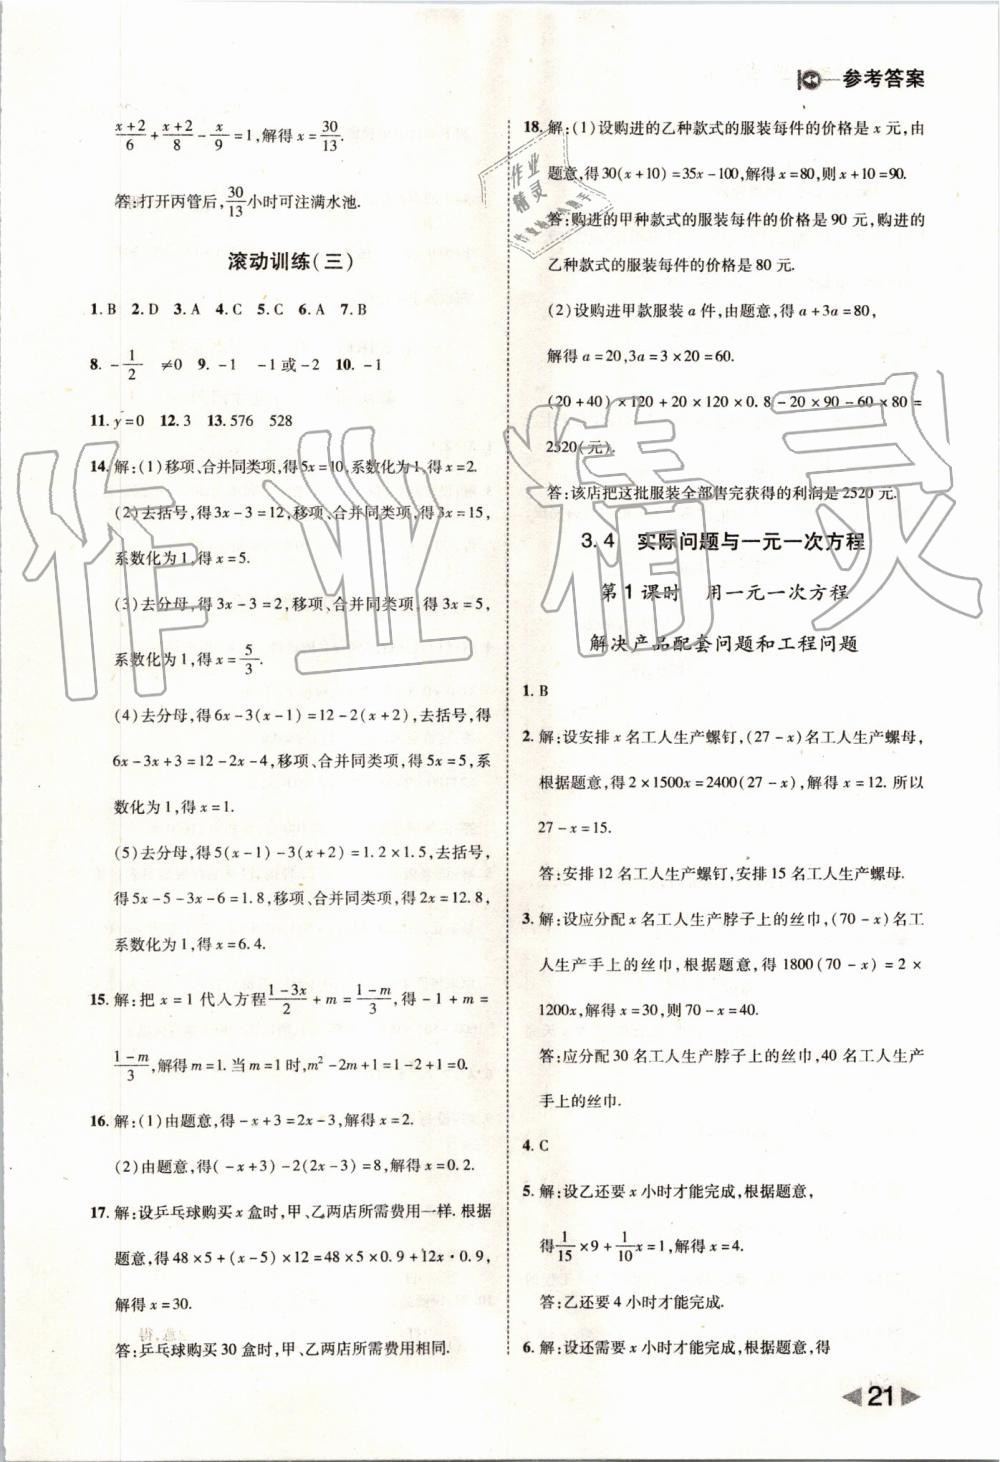 参考答案
(x+2)/6+(x+2)/8-x/9=1,解得x=30/13.
答:打开丙管后,30/13小时可注满水池.
滚动训练(三)
1. B 2. D 3. A 4. C 5. C 6. A 7. B
8. -1/2 ≠0 9. -1 -1或-2 10. -1
11. y=0 12. 3 13. 576 528
14. 解:(1)移项、合并同类项,得5x=10,系数化为1,得x=2.
(2)去括号,得3x-3=12,移项、合并同类项,得3x=15,
系数化为1,得x=5.
(3)去分母,得3x-3=2,移项、合并同类项,得3x=5,
系数化为1,得x=5/3.
(4)去分母,得6x-3(x-1)=12-2(x+2),去括号,得
6x-3x+3=12-2x-4,移项、合并同类项,得5x=5,系
数化为1,得x=1.
(5)去分母,得5(x-1)-3(x+2)=1.2×1.5,去括号,
得5x-5-3x-6=1.8,移项、合并同类项,得2x=12.8,
系数化为1,得x=6.4.
15. 解:把x=1代入方程(1-3x)/2+m=(1-m)/3,得-1+m=
(1-m)/3,解得m=1.当m=1时,m²-2m+1=1-2+1=0.
16. 解:(1)由题意,得-x+3=2x-3,解得x=2.
(2)由题意,得(-x+3)-2(2x-3)=8,解得x=0.2.
17. 解:设乒乓球购买x盒时,甲、乙两店所需费用一样.根据
题意,得48×5+(x-5)×12=48×5×0.9+12x·0.9,
解得x=30.
答:乒乓球购买30盒时,甲、乙两店所需费用相同.
18. 解:(1)设购进的乙种款式的服装每件的价格是x元,由
题意,得30(x+10)=35x-100,解得x=80,则x+10=90.
答:购进的甲种款式的服装每件的价格是90元,购进的
乙种款式的服装每件的价格是80元.
(2)设购进甲款服装a件,由题意,得a+3a=80,
解得a=20,3a=3×20=60.
(20+40)×120+20×120×0.8-20×90-60×80=
2520(元).
答:该店把这批服装全部售完获得的利润是2520元.
3.4 实际问题与一元一次方程
第1课时 用一元一次方程
解决产品配套问题和工程问题
1. B
2. 解:设安排x名工人生产螺钉,(27-x)名工人生产螺母,
根据题意,得2×1500x=2400(27-x),解得x=12.所以
27-x=15.
答:安排12名工人生产螺钉,安排15名工人生产螺母.
3. 解:设应分配x名工人生产脖子上的丝巾,(70-x)名工
人生产手上的丝巾,根据题意,得1800(70-x)=2×
1200x,解得x=30,则70-x=40.
答:应分配30名工人生产脖子上的丝巾,40名工人生产
手上的丝巾.
4. C
5. 解:设乙还要x小时才能完成,根据题意,
得1/15×9+1/10x=1,解得x=4.
答:乙还要4小时才能完成.
6. 解:设还需要x小时才能完成,根据题意,得
21
作业精灵